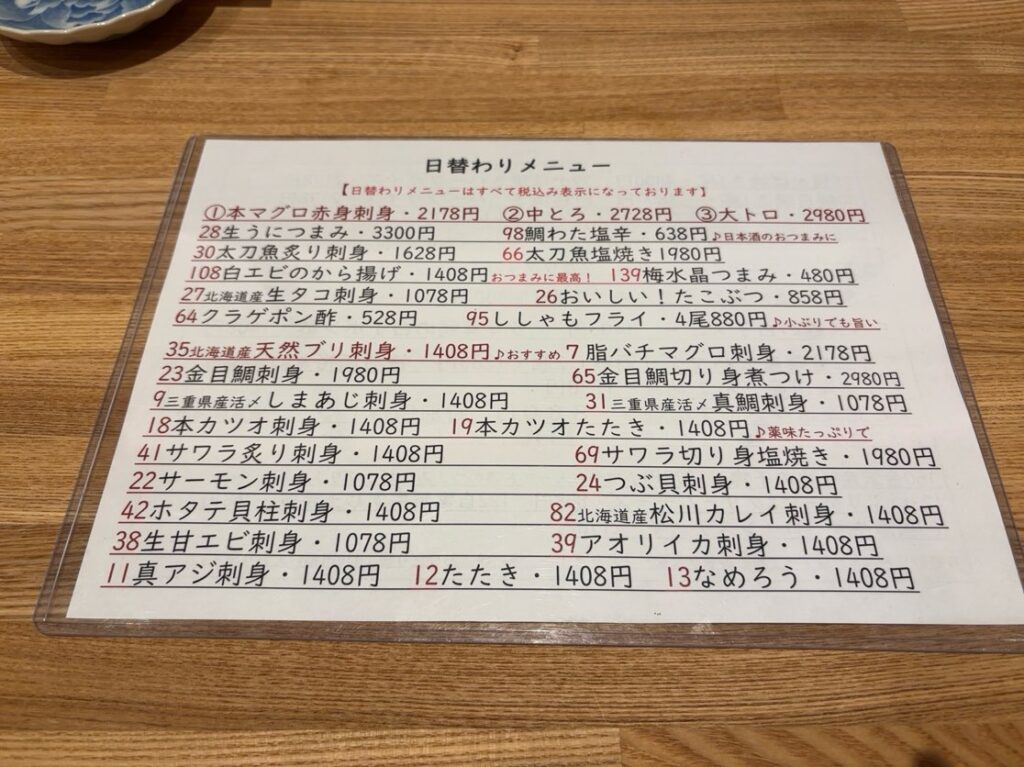 日替わりメニュー
【日替わりメニューはすべて税込み表示になっております】
①本マグロ赤身刺身・2178円 ②中とろ・2728円 ③大トロ・2980円
28生うにつまみ・3300円 98鯛わた塩辛・638円♪日本酒のおつまみに
30太刀魚炙り刺身・1628円 66太刀魚塩焼き1980円
108白エビのから揚げ・1408円おつまみに最高！ 139梅水晶つまみ・480円
27北海道産生タコ刺身・1078円 26おいしい！たこぶつ・858円
64クラゲポン酢・528円 95ししゃもフライ・4尾880円♪小ぶりでも旨い
35北海道産天然ブリ刺身・1408円♪おすすめ 7 脂バチマグロ刺身・2178円
23金目鯛刺身・1980円 65金目鯛切り身煮つけ・2980円
9三重県産活〆しまあじ刺身・1408円 31三重県産活〆真鯛刺身・1078円
18本カツオ刺身・1408円 19本カツオたたき・1408円♪薬味たっぷりで
41サワラ炙り刺身・1408円 69サワラ切り身塩焼き・1980円
22サーモン刺身・1078円 24つぶ貝刺身・1408円
42ホタテ貝柱刺身・1408円 82北海道産松川カレイ刺身・1408円
38生甘エビ刺身・1078円 39アオリイカ刺身・1408円
11真アジ刺身・1408円 12たたき・1408円 13なめろう・1408円